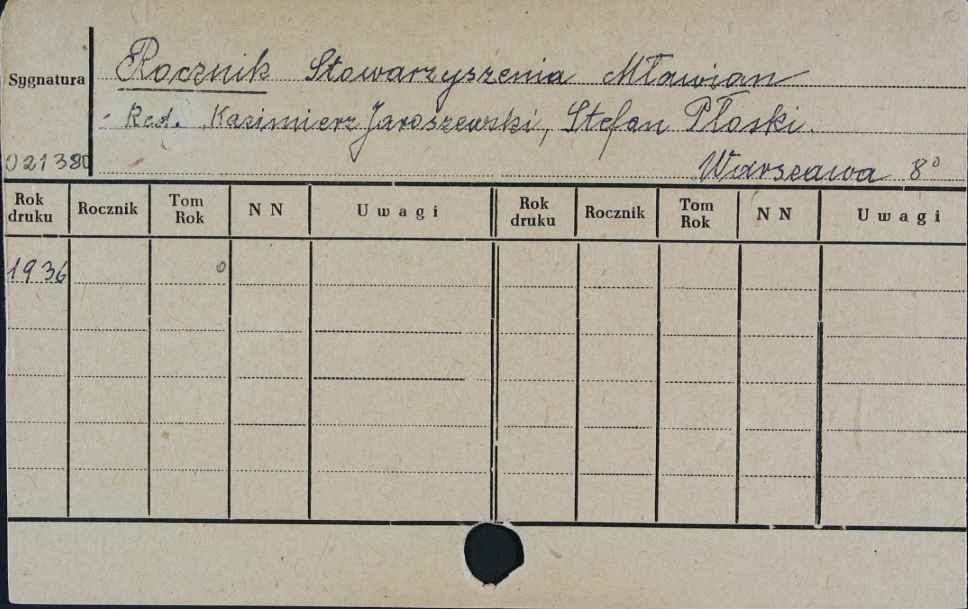 Rocznik Stowarzyszenia Mławian
Sygnatura
- Red. Kazimierz Jaroszewski, Stefan Płoski.
021380
Warszawa 8°
Rok druku Rocznik Tom Rok N N Uwagi Rok druku Rocznik Tom Rok N N Uwagi
1936